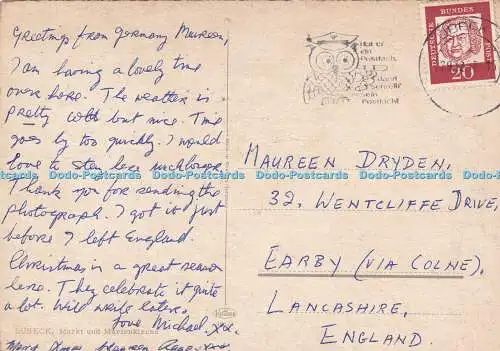 Greetings from Germany Maureen,
I am having a lovely time
over here. The weather is
pretty cold but nice. Time
goes by too quickly. I would
love to stay here much longer.
Thank you for sending the
photograph. I got it just
before I left England.
Christmas is a great season
here. They celebrate it quite
a lot. Will write later.
Love Michael. xxx.
LÜBECK, Markt und Marienkirche
Hat er
ein
Postfach,
dann
Schreib
sein
Postfach!
DEUTSCHE BUNDESPOST
20
MAUREEN DRYDEN,
32, WENTCLIFFE DRIVE,
EARBY (VIA COLNE),
LANCASHIRE,
ENGLAND.
Dodo-Postcards Dodo-Postcards Dodo-Postcards Dodo-Postcards Dodo-Postcards